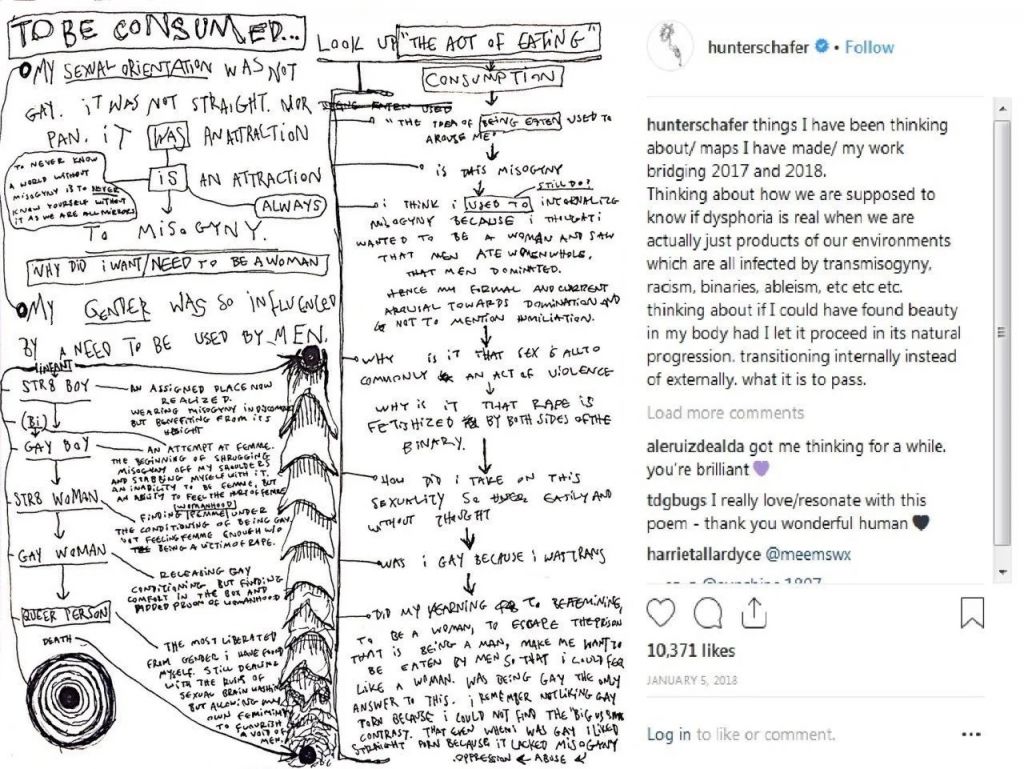 TO BE CONSUMED...
MY SEXUAL ORIENTATION WAS NOT
GAY. iT WAS NOT STRAIGHT. NOR
PAN. iT WAS AN ATTRACTION
iS AN ATTRACTION
ALWAYS
TO MiSOGYNY.
TO NEVER KNOW
A WORLD WITHOUT
MISOGYNY IS TO NEVER
KNOW YOURSELF WITHOUT
IT AS WE ARE ALL MIRRORS
WHY DiD i WANT/NEED TO BE A WOMAN
MY GENDER WAS SO iNFLUENCED
BY A NEED TO BE USED BY MEN.
INFANT
STR8 BOY
AN ASSIGNED PLACE NOW
REALIZED.
WEARING MISOGYNY IN DISCOMFORT
BUT BENEFITING FROM ITS
(Bi)
GAY BOY
AN ATTEMPT AT FEMME.
THE BEGINNING OF SHRUGGING
MISOGYNY OFF MY SHOULDERS
AND STABBING MYSELF WITH IT.
AN INABILITY TO BE FEMME, BUT
AN ABILITY TO FEEL THE HURT OF FEMME
STR8 WOMAN
WOMANHOOD
FINDING FEMME UNDER
THE CONDITIONING OF BEING GAY.
NOT FEELING FEMME ENOUGH W/O
BEING A VICTIM OF RAPE.
GAY WOMAN
RELEASING GAY
CONDITIONING BUT FINDING
COMFORT IN THE BOX AND
ADDED PROOF OF WOMANHOOD
QUEER PERSON
DEATH
THE MOST LIBERATED
FROM GENDER i HAVE FOUND
MYSELF. STILL DEALING
WITH THE RUINS OF
SEXUAL BRAIN WASHING
BUT ALLOWING MY
OWN FEMININITY
TO FLOURISH
A VOID OF
MEN.
LOOK UP "THE ACT OF EATING"
CONSUMPTION
"THE IDEA OF BEING EATEN USED TO
AROUSE ME"
iS THIS MISOGYNY
STILL DO?
i THINK i USED TO INTERNALIZE
MISOGYNY BECAUSE i THOUGHT i
WANTED TO BE A WOMAN AND SAW
THAT MEN ATE WOMEN WHOLE.
THAT MEN DOMINATED.
HENCE MY FORMAL AND CURRENT
AROUSAL TOWARDS DOMINATION AND
NOT TO MENTION HUMILIATION.
WHY IS IT THAT SEX IS ALL TO
COMMONLY AN ACT OF VIOLENCE
WHY IS IT THAT RAPE IS
FETISHIZED BY BOTH SIDES OF THE
BINARY.
HOW DID i TAKE ON THIS
SEXUALITY SO EATILY AND
WITHOUT THOUGHT
WAS i GAY BECAUSE i WAS TRANS
DID MY YEARNING TO BE FEMININE,
TO BE A WOMAN, TO ESCAPE THE PRISON
THAT IS BEING A MAN, MAKE ME WANT TO
BE EATEN BY MEN SO THAT i COULD FEEL
LIKE A WOMAN. WAS BEING GAY THE ONLY
ANSWER TO THIS. i REMEMBER NOT LIKING GAY
PORN BECAUSE i COULD NOT FIND THE "BIG VS SMALL
CONTRAST. THAT EVEN WHEN i WAS GAY i LIKED
STRAIGHT PORN BECAUSE IT LACKED MISOGYNY
OPPRESSION ← ABUSE
hunterschafer • Follow
hunterschafer things I have been thinking
about/ maps I have made/ my work
bridging 2017 and 2018.
Thinking about how we are supposed to
know if dysphoria is real when we are
actually just products of our environments
which are all infected by transmisogyny,
racism, binaries, ableism, etc etc etc.
thinking about if I could have found beauty
in my body had I let it proceed in its natural
progression. transitioning internally instead
of externally. what it is to pass.
Load more comments
aleruizdealda got me thinking for a while.
you're brilliant 💜
tdgbugs I really love/resonate with this
poem - thank you wonderful human 🖤
harrietallardyce @meemswx
10,371 likes
JANUARY 5, 2018
Log in to like or comment.